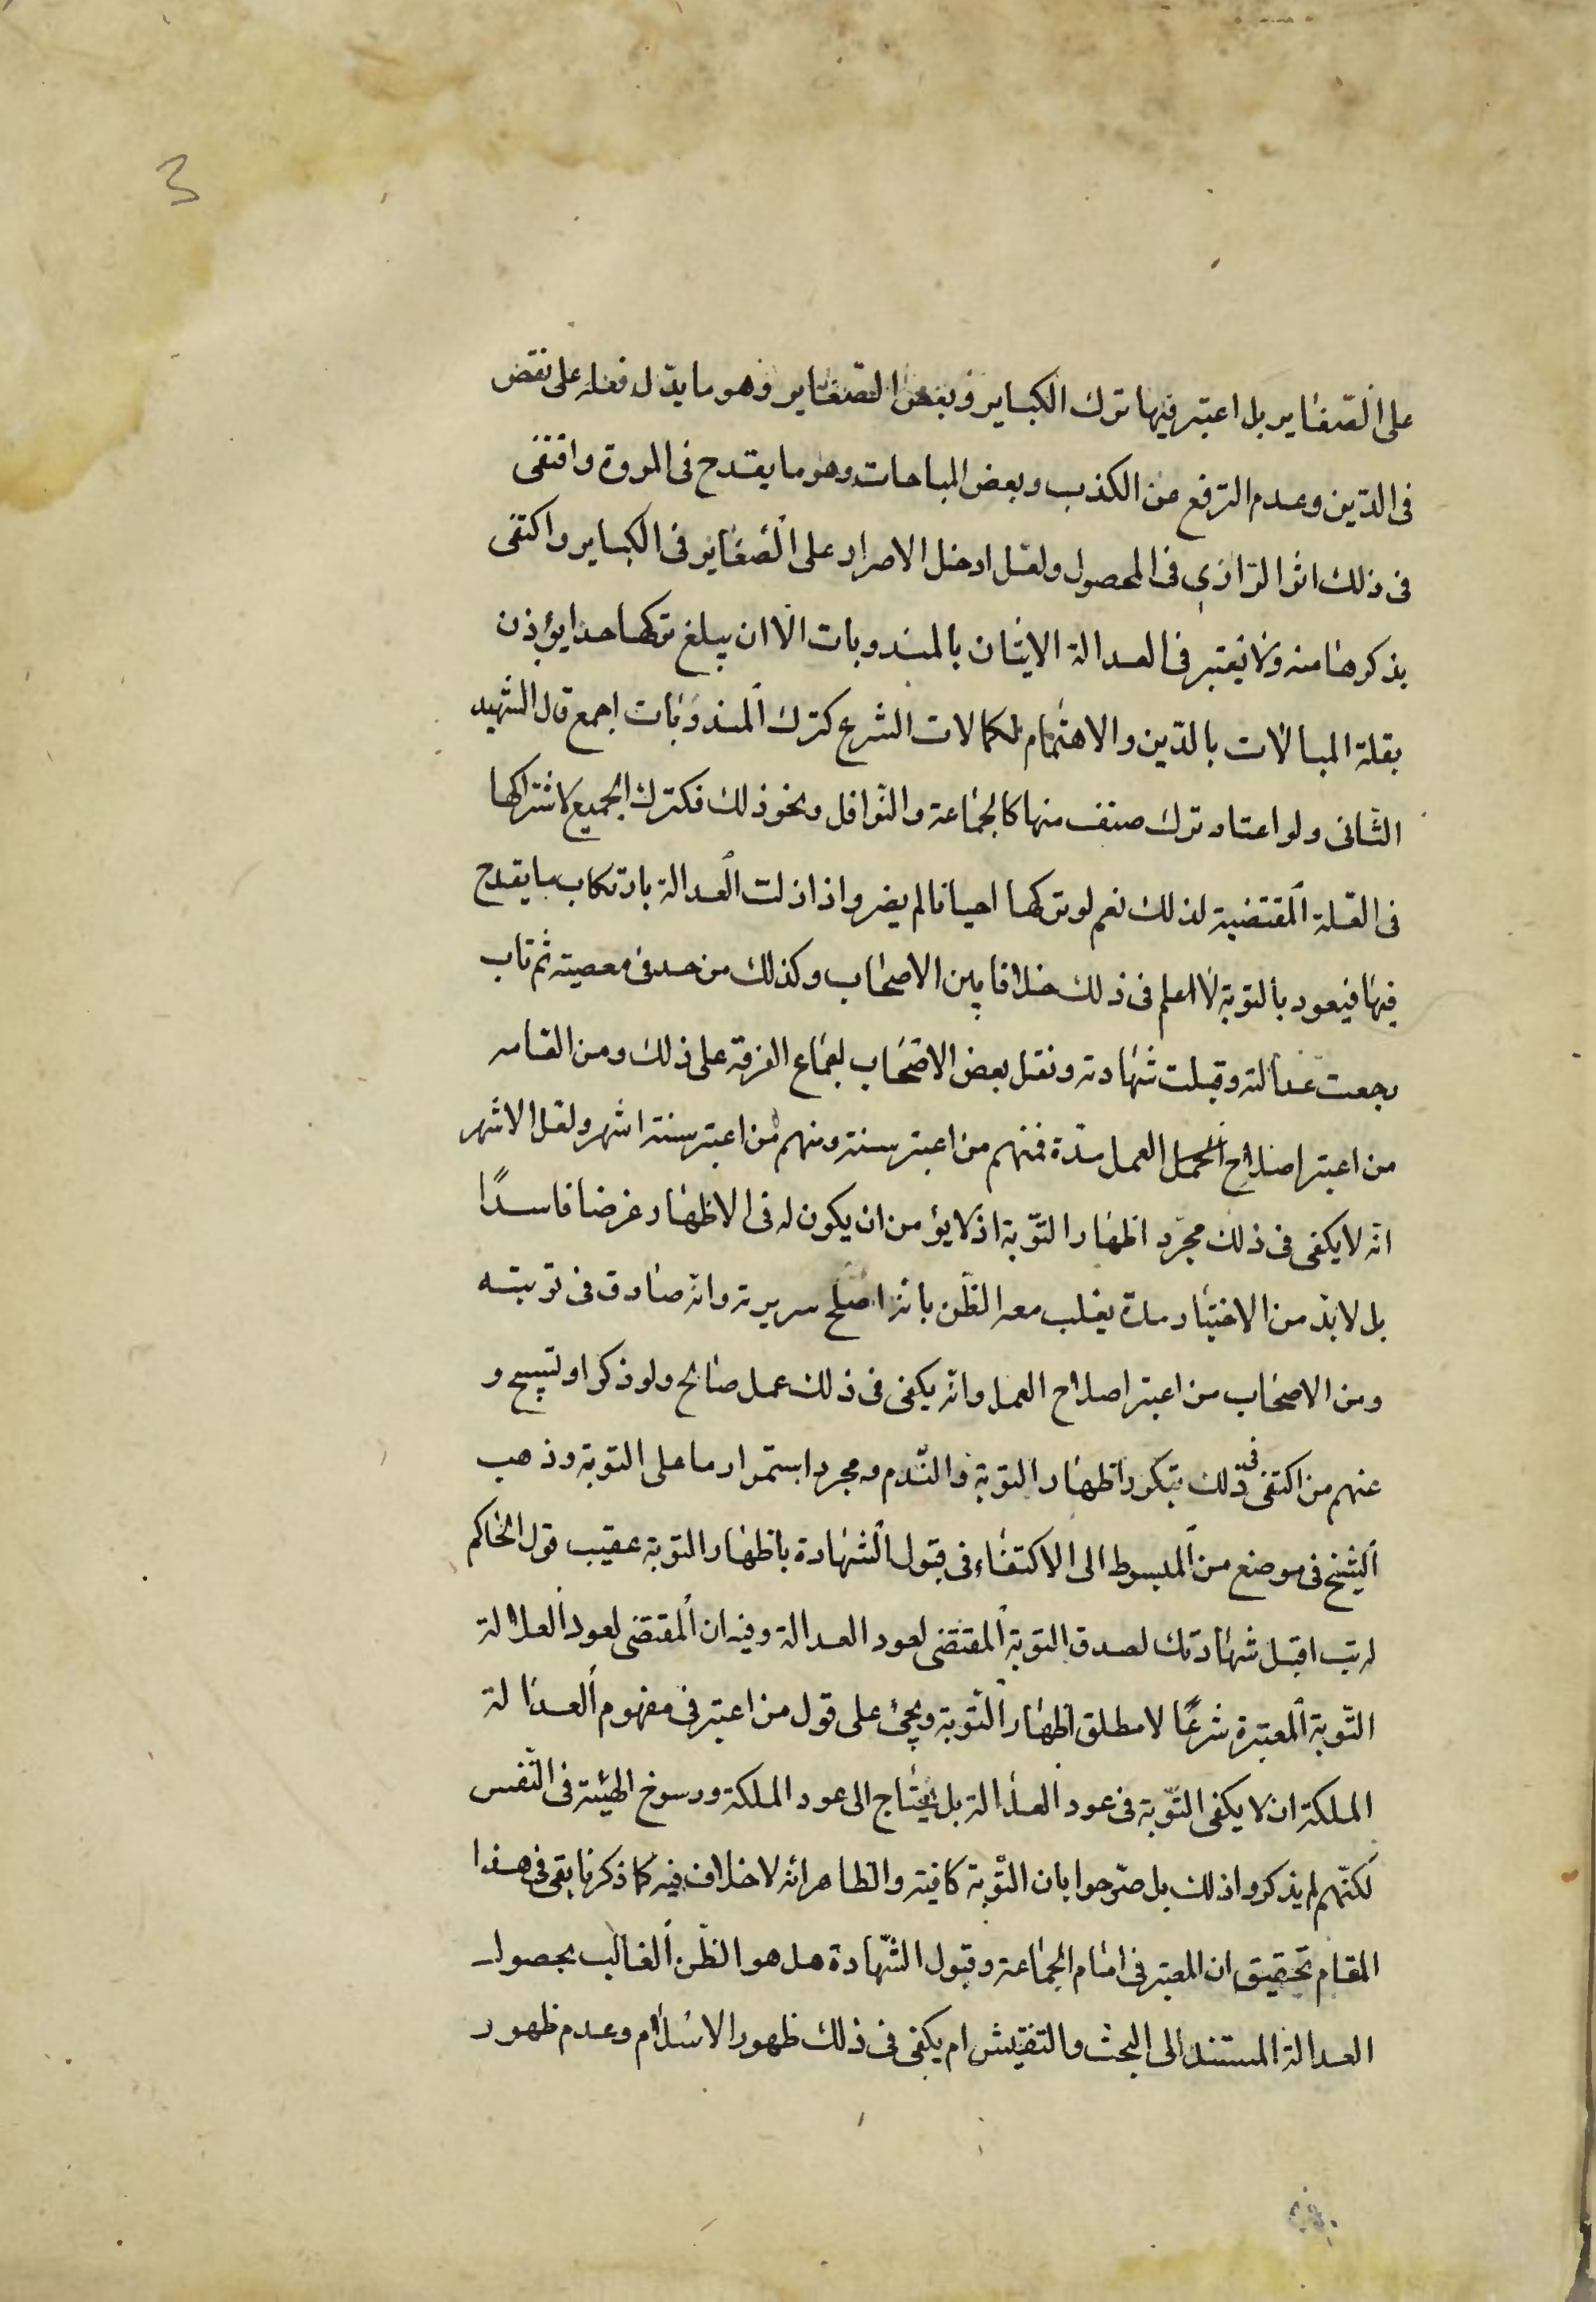 3
على الصّغاير بل اعتبر فيها ترك الكباير وبعض الصّغاير وهو ما يدّل فعله على نقص
فى الدّين وعدم الترفع عن الكذب وبعض المباحات وهو ما يقدح فى المروة واقتفى
فى ذلك اثر الرّازي فى المحصول ولعل ادخل الاصرار على الصّغاير فى الكباير واكتفى
بذكرها منه ولا يعتبر فى العدالة الاتيان بالمندوبات الّا ان يبلغ تركها حدا يؤذن
بقلة المبالات بالدّين والاهتمام بكمالات الشرع كترك المندوبات اجمع قال الشهيد
الثانى ولو اعتاد ترك صنف منها كالجماعة والنّوافل ونحو ذلك فكترك الجميع لاشتراكها
فى القلة المقتضية لذلك نعم لو تركها احيانا لم يضر واذا زلت العدالة بارتكاب ما يقدح
فيها فيعود بالتوبة لا اعلم فى ذلك خلافا بين الاصحاب وكذلك من حد فى معصيته ثم تاب
رجعت عدالته وقبلت شهادته ونقل بعض الاصحاب اجماع الفرقة على ذلك ومن العامه
من اعتبر اصلاح العمل مدّة فمنهم من اعتبر سنة ومنهم من اعتبر ستة اشهر ولعل الاشهر
انّه لا يكفى فى ذلك مجرّد اظهار التّوبة اذ لا يؤمن ان يكون له فى الاظهار غرضا فاسدًا
بل لا بدّ من الاختبار مدة يغلب معه الظّن بانّه اصلح سريرته وانّه صادق فى توبته
ومن الاصحاب من اعتبر اصلاح العمل وانّه يكفى فى ذلك عمل صالح ولو ذكر او تسبيح و
عنهم من اكتفى فى ذلك بتكرر اظهار التوبة والنّدم و مجرد استمرار ما على التوبة وذهب
الشيخ فى موضع من المبسوط الى الاكتفاء فى قبول الشهادة باظهار التوبة عقيب قول الحاكم
له تب اقبل شهادتك لصدق التوبة المقتضى لعود العدالة وفيه ان المقتضى لعود العدالة
التّوبة المعتبرة شرعًا لا مطلق اظهار التّوبة ويجئ على قول من اعتبر فى مفهوم العدالة
الملكة ان لا يكفى التّوبة فى عود العدالة بل يحتاج الى عود الملكة ورسوخ الهيئة فى النّفس
لكنّهم لم يذكروا ذلك بل صرّحوا بان التّوبة كافية والظاهر انّه لا خلاف فيه كما ذكرنا بقى فى هذا
المقام تحقيق ان المعتبر فى امام الجماعة وقبول الشّهادة هل هو الظّن الغالب بحصول
العدالة المستند الى البحث والتفتيش ام يكفى فى ذلك ظهور الاسلام وعدم ظهور